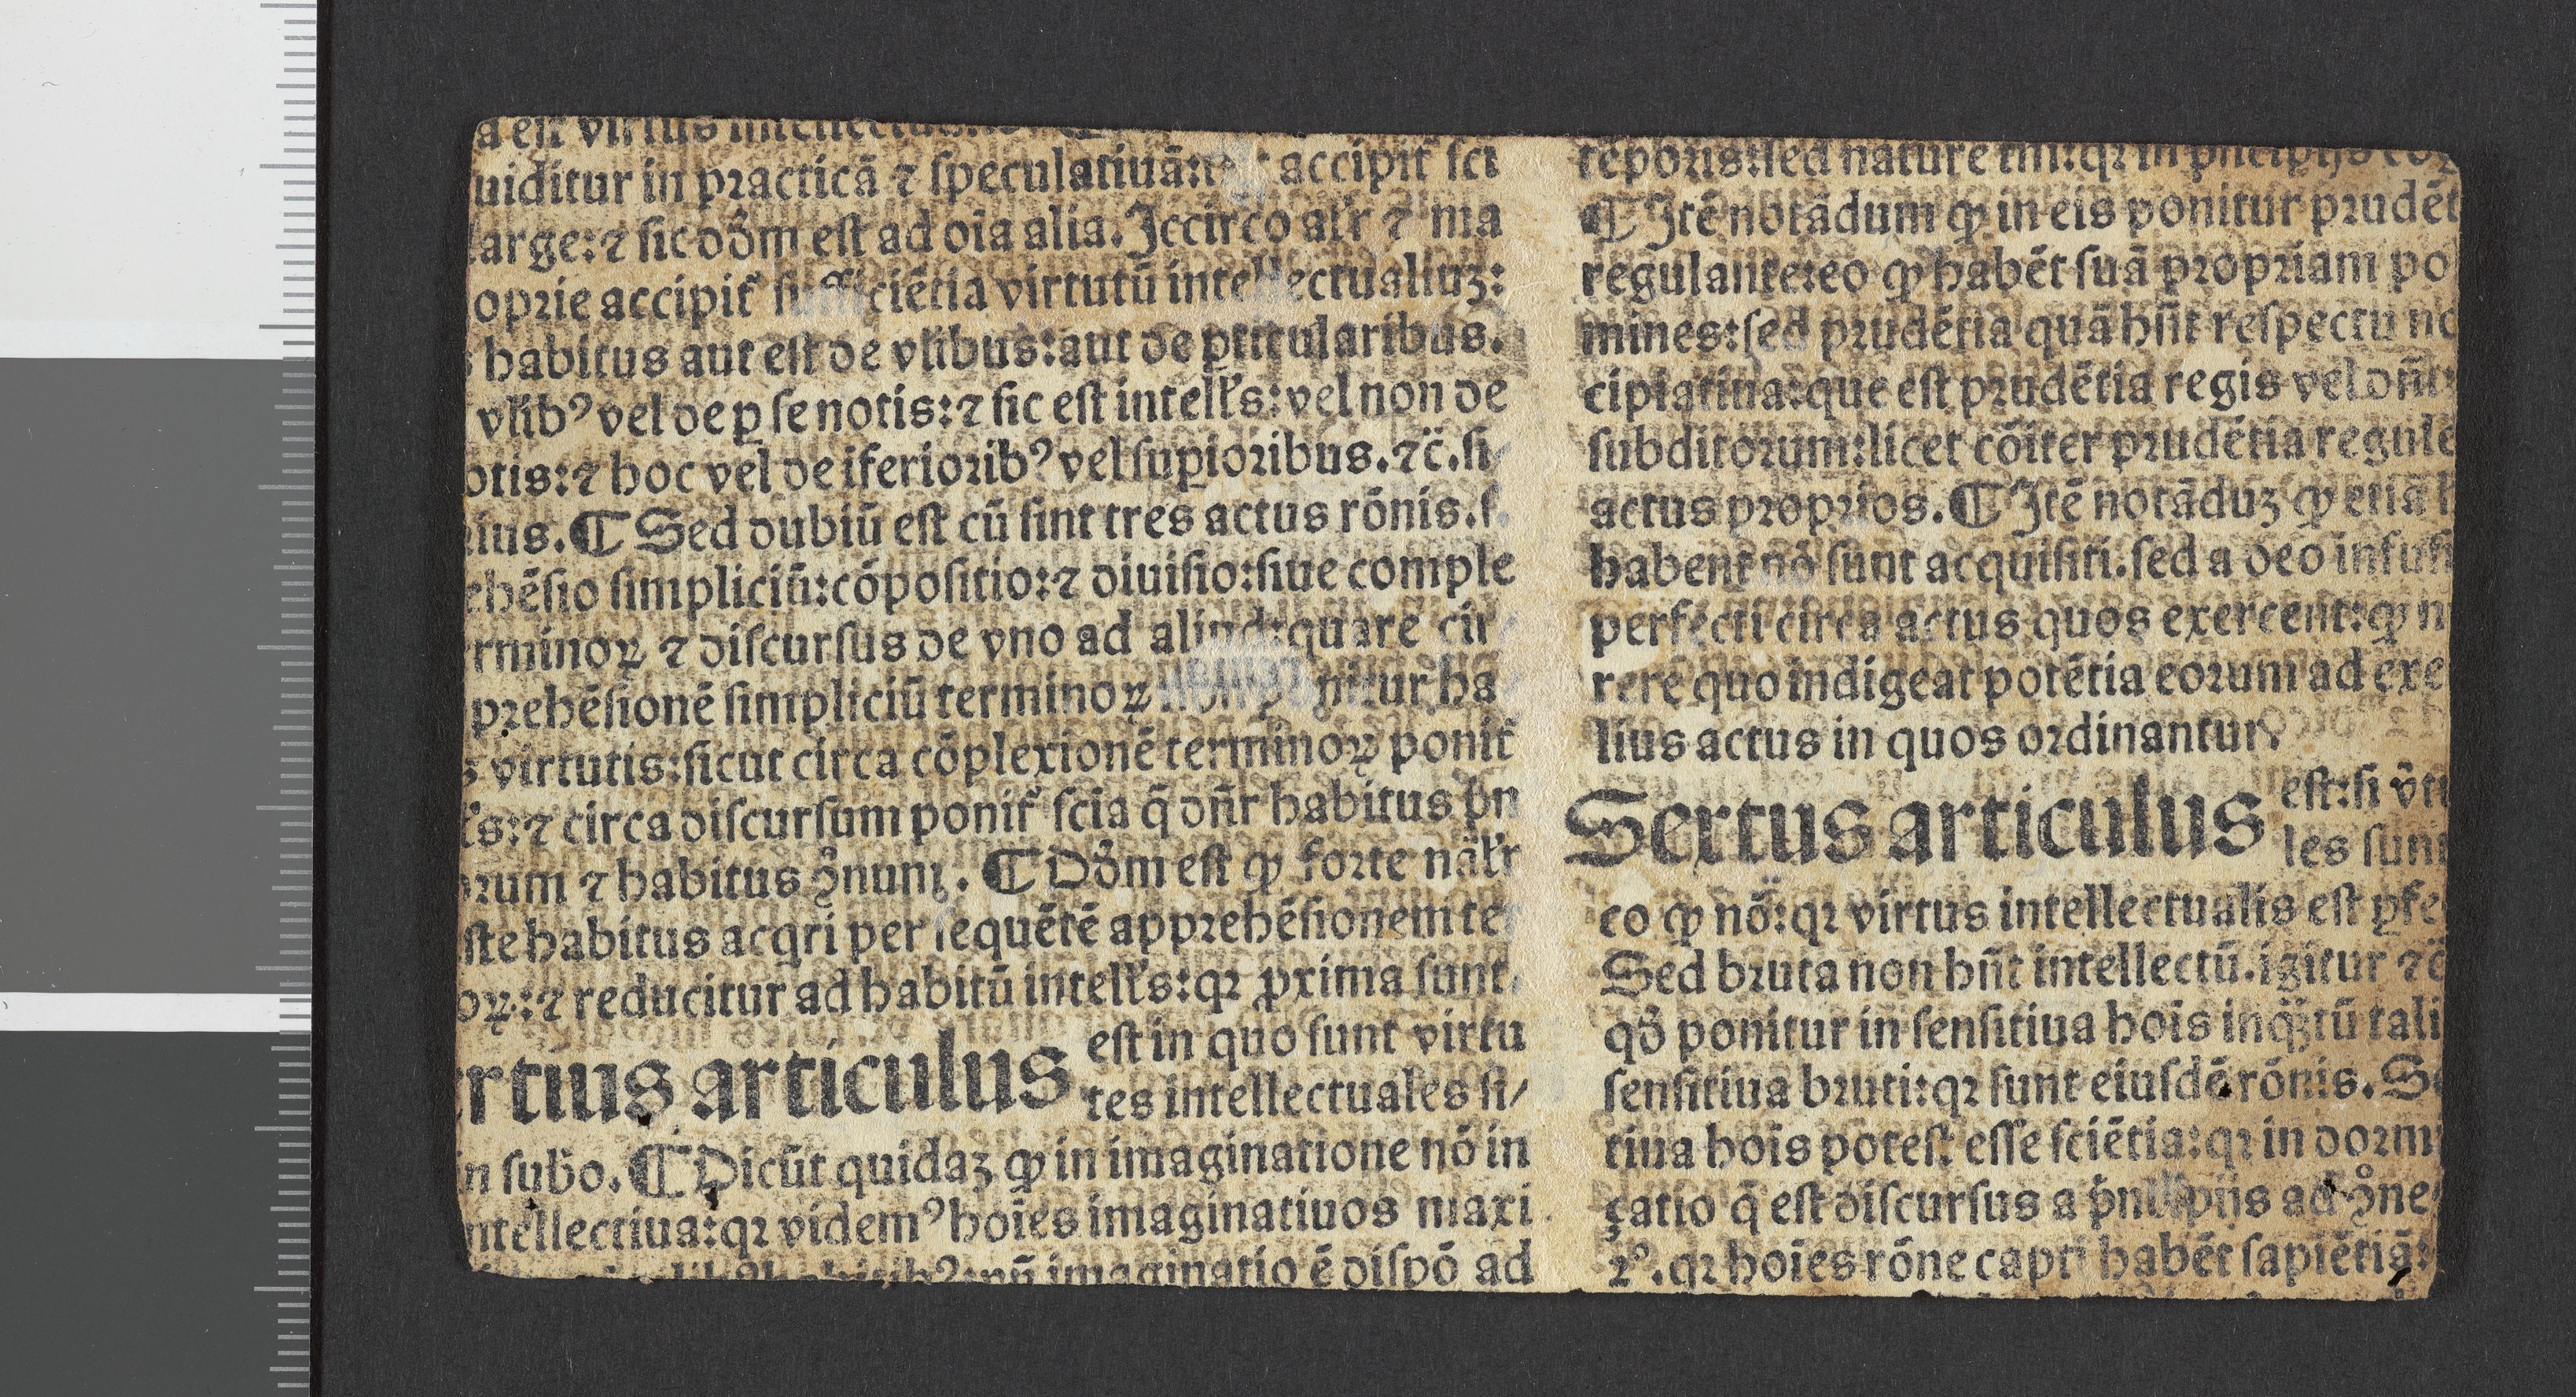 a est virtus
uiditur in practicā ⁊ ſpeculatiuā: accipit̄ ſci
large: ⁊ ſic dd̄m eſt ad oīa alia. Iccirco at̄r ⁊ ma
oprie accipit̄ ſufficiētia virtutū intellectualiuꝫ:
habitus aut eſt de vl̄ibus: aut de ꝑticularibus.
vl̄ibꝰ vel de ꝑ ſe notis: ⁊ ſic eſt intell̄s: vel non de
otis: ⁊ hoc vel de iferioribꝰ vel ſuꝑioribus. ⁊c̄. ſi
ius. ¶ Sed dubiū eſt cū ſint tres actus rōnis. ſ.
ehēſio ſimpliciū: cōpoſitio: ⁊ diuiſio: ſiue comple
rminoꝝ ⁊ diſcurſus de vno ad aliud: quare cir
prehēſionē ſimpliciū terminoꝝ non ponitur ha
virtutis: ſicut circa cōplexionē terminoꝝ ponit̄
s: ⁊ circa diſcurſum ponit̄ ſcīa q̄ dn̄r habitus p̄n
rum ⁊ habitus ꝯnum. ¶ Dd̄m eſt ꝙ forte nāl̄r
ſte habitus acqri per ſequētē apprehēſionem te
oꝝ: ⁊ reducitur ad habitū intell̄s: qꝛ ꝓxima ſunt
rtius articulus eſt in quo ſunt virtu
tes intellectuales ſi/
in ſubo. ¶ Dicūt quidaꝫ ꝙ in imaginatione nō in
ntellectiua: qꝛ videmꝰ hoīes imaginatiuos maxi
imaginatio ē diſpō ad
tēporis: ſed nature
¶ Itē notādum ꝙ in eis ponitur prudēt
regulante: eo ꝙ habēt ſuā propriam po
mines: ſed prudētia quā hn̄t reſpectu no
cipiatiua: que eſt prudētia regis vel dn̄i:
ſubditorum: licet cōiter prudētia regule
actus proprios. ¶ Itē notāduꝫ ꝙ etiā h
habent nō ſunt acquiſiti. ſed a deo infuſi
perfecti circa actus quos exercent: ꝙ n
rere quo indigeat potētia eorum ad exe
lius actus in quos ordinantur.
Sextus articulus eſt: ſi v̄tu
les ſunt
co ꝙ nō: qꝛ virtus intellectualis eſt ꝑfe
Sed bruta non hn̄t intellectū. igitur ⁊c̄
qd̄ ponitur in ſenſitiua hoīs inq̄ꝫtū tali
ſenſitiua bruti: qꝛ ſunt eiuſdē rōnis. Se
tiua hoīs poteſt eſſe ſciētia: qꝛ in dorm
çatio q̄ eſt diſcurſus a ad ꝯne
2º. qꝛ hoīes rōne capti habēt ſapiētiā: